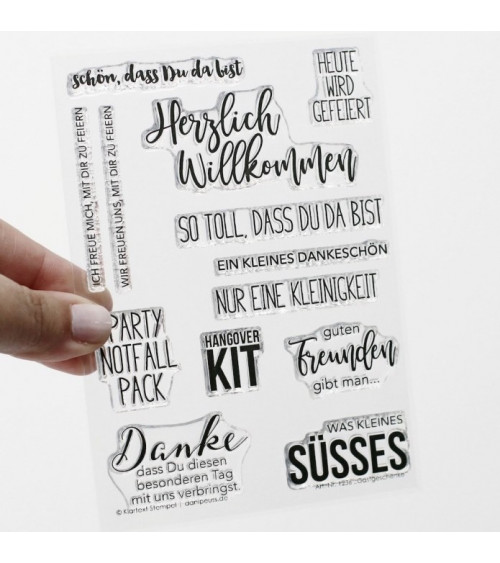 schön, dass Du da bist
HEUTE
WIRD
GEFEIERT
Herzlich
Willkommen
ICH FREUE MICH, MIT DIR ZU FEIERN
WIR FREUEN UNS, MIT DIR ZU FEIERN
SO TOLL, DASS DU DA BIST
EIN KLEINES DANKESCHÖN
NUR EINE KLEINIGKEIT
PARTY
NOTFALL
PACK
HANGOVER
KIT
guten
Freunden
gibt man...
Danke
dass Du diesen
besonderen Tag
mit uns verbringst.
WAS KLEINES
SÜSSES
© Klartext Stempel | danipeuss.de